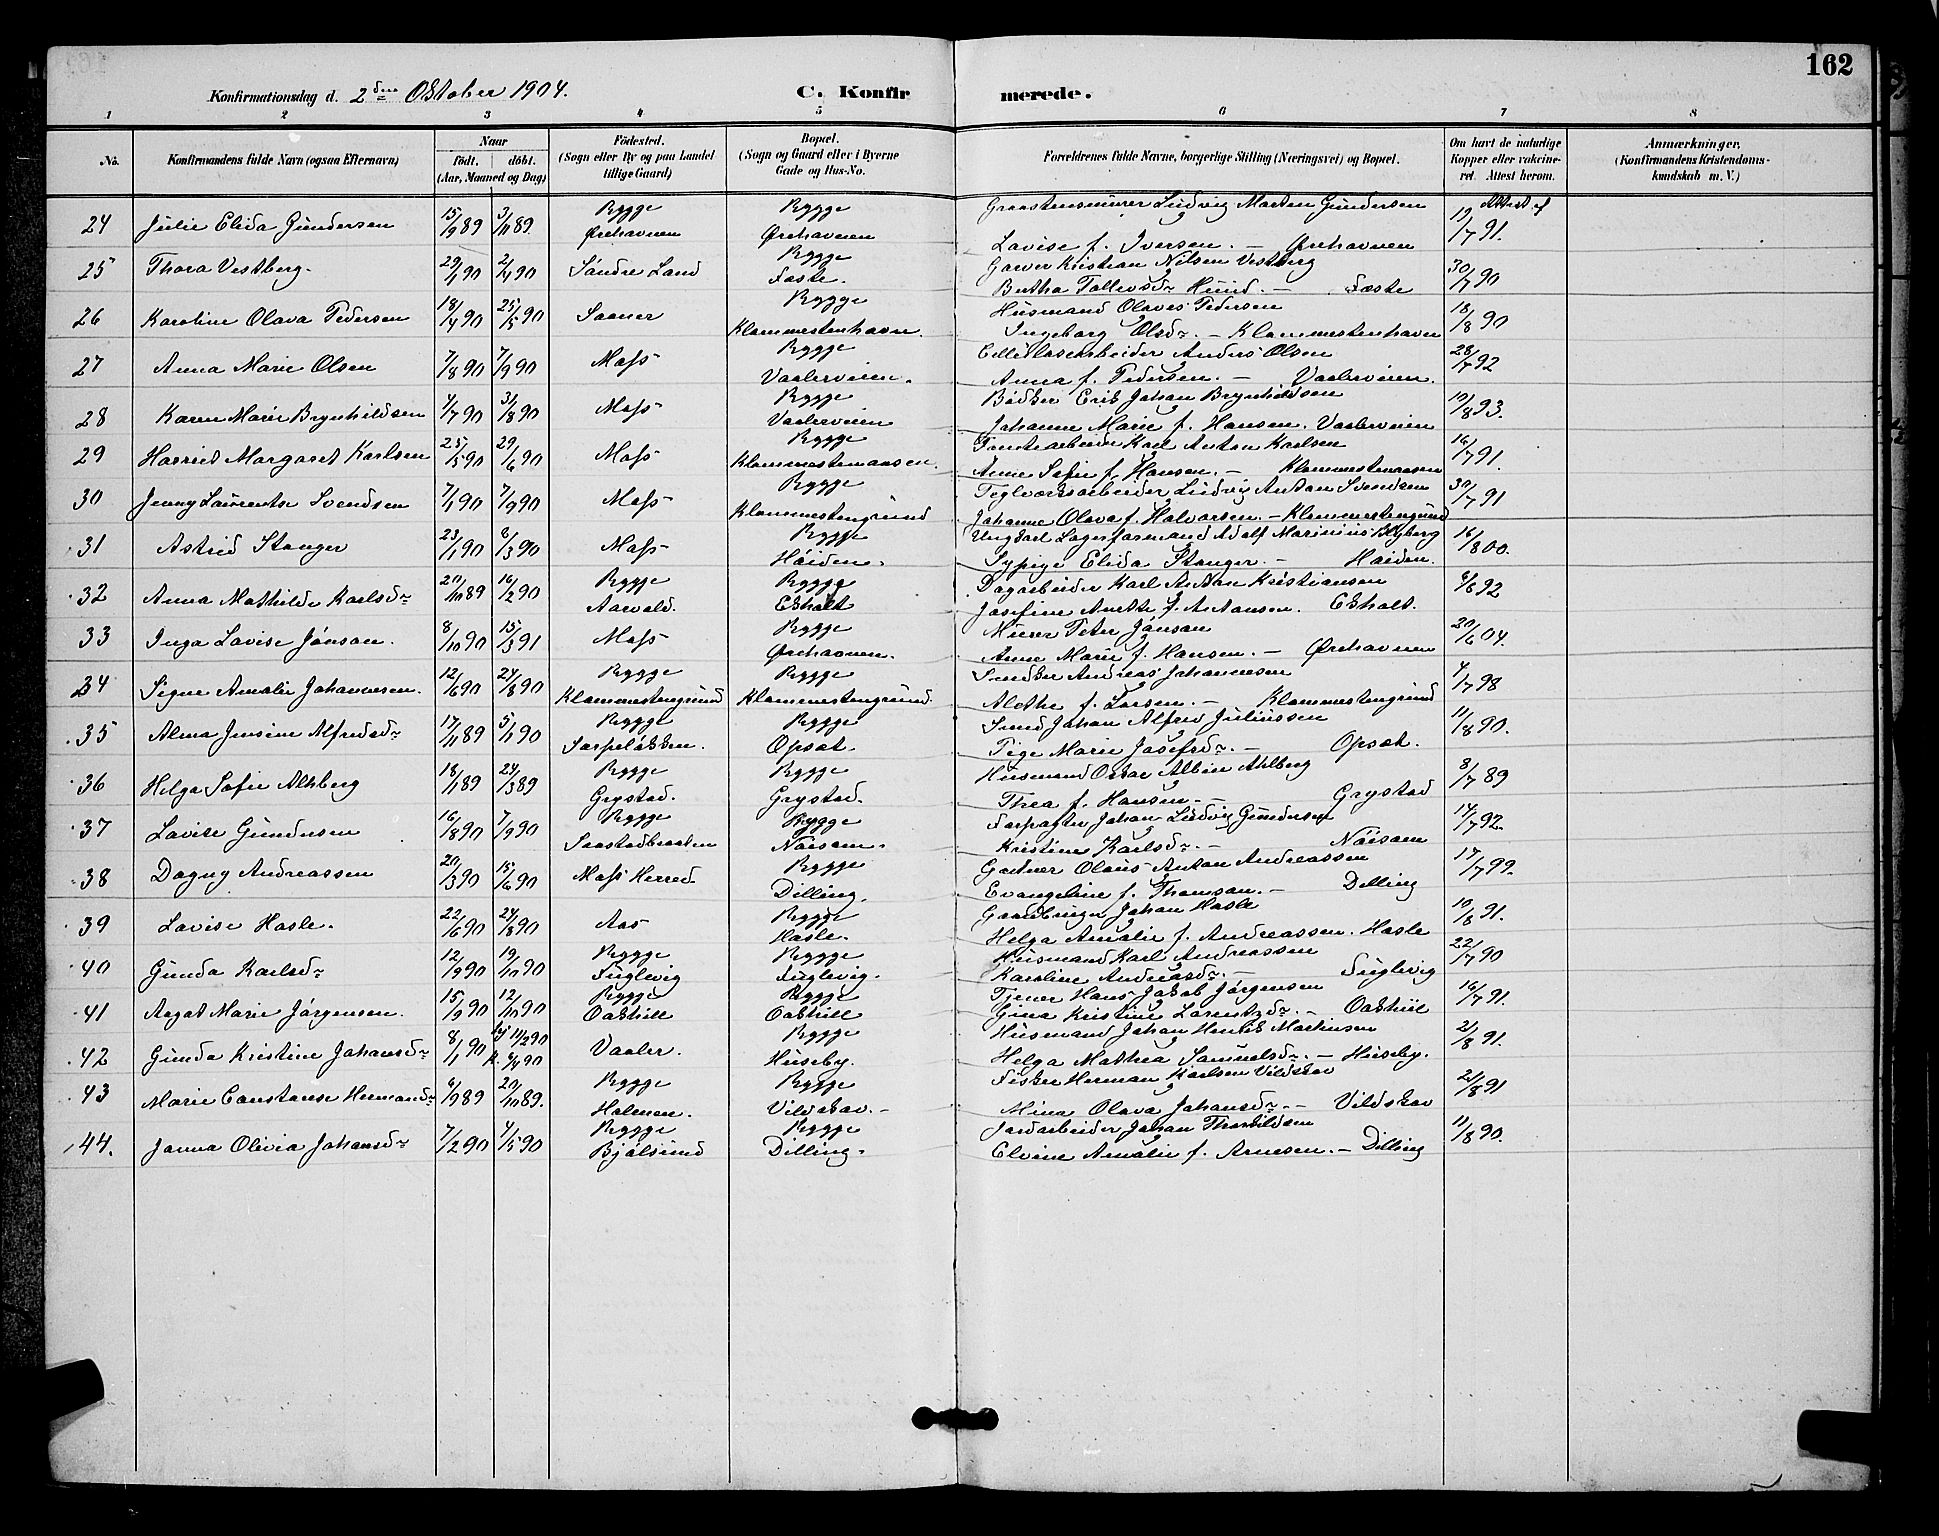 162
Konfirmationsdag d. 2den Oktober 1904. C. Konfirmerede.
1 2 3 4 5 6 7 8
No. Konfirmandens fulde Navn (ogsaa Efternavn) Naar födt. döbt. (Aar, Maaned og Dag) Födested. (Sogn eller By og paa Landet tillige Gaard) Bopæl. (Sogn og Gaard eller i Byerne Gade og Hus-No. Forældrenes fulde Navne, borgerlige Stilling (Næringsvei) og Bopæl. Om havt de naturlige Kopper eller vakcineret. Attest herom. Anmærkninger, (Konfirmandens Kristendomskundskab m. V.)
24 Julie Elida Gundersen 15/9 89 3/11 89. Rygge Ørehavnen Rygge Ørehavnen Graastensmurer Ludvig Marten Gundersen Attest af 19/7 91.
Lovise f. Iversen. — Ørehavnen
25 Thora Vestberg. 29/1 90 2/4 90 Söndre Land Rygge Feste. Garver Kristian Nilsen Vestberg 30/7 90
Bertha Tollevsdr Hund. — Feste
26 Karoline Olava Pedersen 18/4 90 25/5 90 Saaner Rygge Klommestenhavn. Husmand Olaves Pedersen 18/8 90
Ingeborg Olsdr. — Klommestenhavn
27 Anna Marie Olsen 7/8 90 7/9 90 Moss Rygge Vaalerveien. Cellulosearbeider Anders Olsen 28/7 92
Anna f. Pedersen. — Vaalerveien.
28 Karen Marie Brynhildsen 4/7 90 31/8 90 Moss Rygge Vaalerveien Bödker Erik Johan Brynhildsen 19/8 93.
Johanne Marie f. Hansen. Vaalerveien
29 Harriet Margaret Karlsen 25/5 90 29/6 90 Moss Rygge Klommestenaasen. Tomtearbeider Karl Anton Karlsen 16/7 91.
Anne Sofie f. Hansen. — Klommestenaasen
30 Jenny Laurentse Svendsen 7/1 90 7/9 90 Moss Rygge Klommestengrund Teglverksarbeider Ludvig Anton Svendsen 30/7 91
Johanne Olava f. Halvorsen. — Klommestengrund
31 Astrid Stanger 23/1 90 8/3 90 Moss Rygge Höiden. Ungkarl Lagerformand Adolf Marinius Nyberg 16/8 00.
Sypige Elida Stanger. — Höiden.
32 Anna Mathilde Karlsdr 20/10 89 16/2 90 Rygge Aarvold. Rygge Ekholt Dagarbeider Karl Anton Kristiansen 6/8 92
Josefine Anette f. Antonsen. Ekholt.
33 Inga Lovise Jönson. 8/10 90 15/3 91 Moss Rygge Ørehavnen. Murer Peter Jönson 20/6 04.
Anne Marie f. Hansen. — Ørehavnen
34 Signe Amalie Johannesen. 12/6 90 24/8 90 Rygge Klommestengrund Rygge Klommestengrund. Snedker Andreas Johannesen 4/7 98
Alethe f. Larsen. — Klommestengrund
35 Alma Jensine Alfredsdr 17/11 89 5/1 90 Rygge Sarpelökken. Rygge Opsæt. Smed Johan Alfred Juliussen 11/8 90.
Pige Marie Josefsdr. — Opsæt.
36 Helga Sofie Ahlberg 18/1 89 24/3 89 Rygge Grystad. Rygge Grystad. Husmand Oskar Albin Ahlberg 8/7 89
Thea f. Hansen. — Grystad
37 Lovise Gundersen 16/8 90 7/9 90 Rygge Saastadbraaten Rygge Nöisom. Forpagter Johan Ludvig Gundersen 14/7 92.
Kristine Karlsdr. — Nöisom
38 Dagny Andreassen 20/3 90 15/6 90 Moss Herred Rygge Dilling. Gartner Olaus Anton Andreassen 17/7 99.
Evangeline f. Thomson. — Dilling
39 Lovise Hasle. 22/6 90 24/8 90 Aas Rygge Hasle. Gaardbruger Johan Hasle 19/8 91.
Helga Amalie f. Andreassen. Hasle
40 Gunda Karlsdr 12/9 90 19/10 90 Rygge Fuglevig Rygge Fuglevig. Husmand Karl Andreassen 22/7 90
Karoline Andreasdr. — Fuglevig
41 Aagot Marie Jörgensen. 15/9 90 12/10 90 Rygge Oakhill Rygge Oakhill Tjener Hans Jakob Jörgensen 16/7 91.
Gina Kristine Lorentzdr. — Oakhill
42 Gunda Kristine Johansdr 8/1 90 11/2 90 k. 6/4 90 Vaaler. Rygge Huseby. Husmand Johan Henrik Martinsen 21/8 91.
Helga Mathea Samuelsdr. — Huseby.
43 Marie Constanse Hermandr 6/9 89 20/10 89. Rygge Holmen. Rygge Vildskov. — Fisker Herman Karlsen Vildskov 21/8 91
Mina Olava Johansdr. — Vildskov
44. Janna Olivia Johansdr 7/2 90 4/5 90 Rygge Bjölsund Rygge Dilling. Jordarbeider Johan Thorkildsen 11/8 90.
Elvine Amalie f. Arnesen. — Dilling